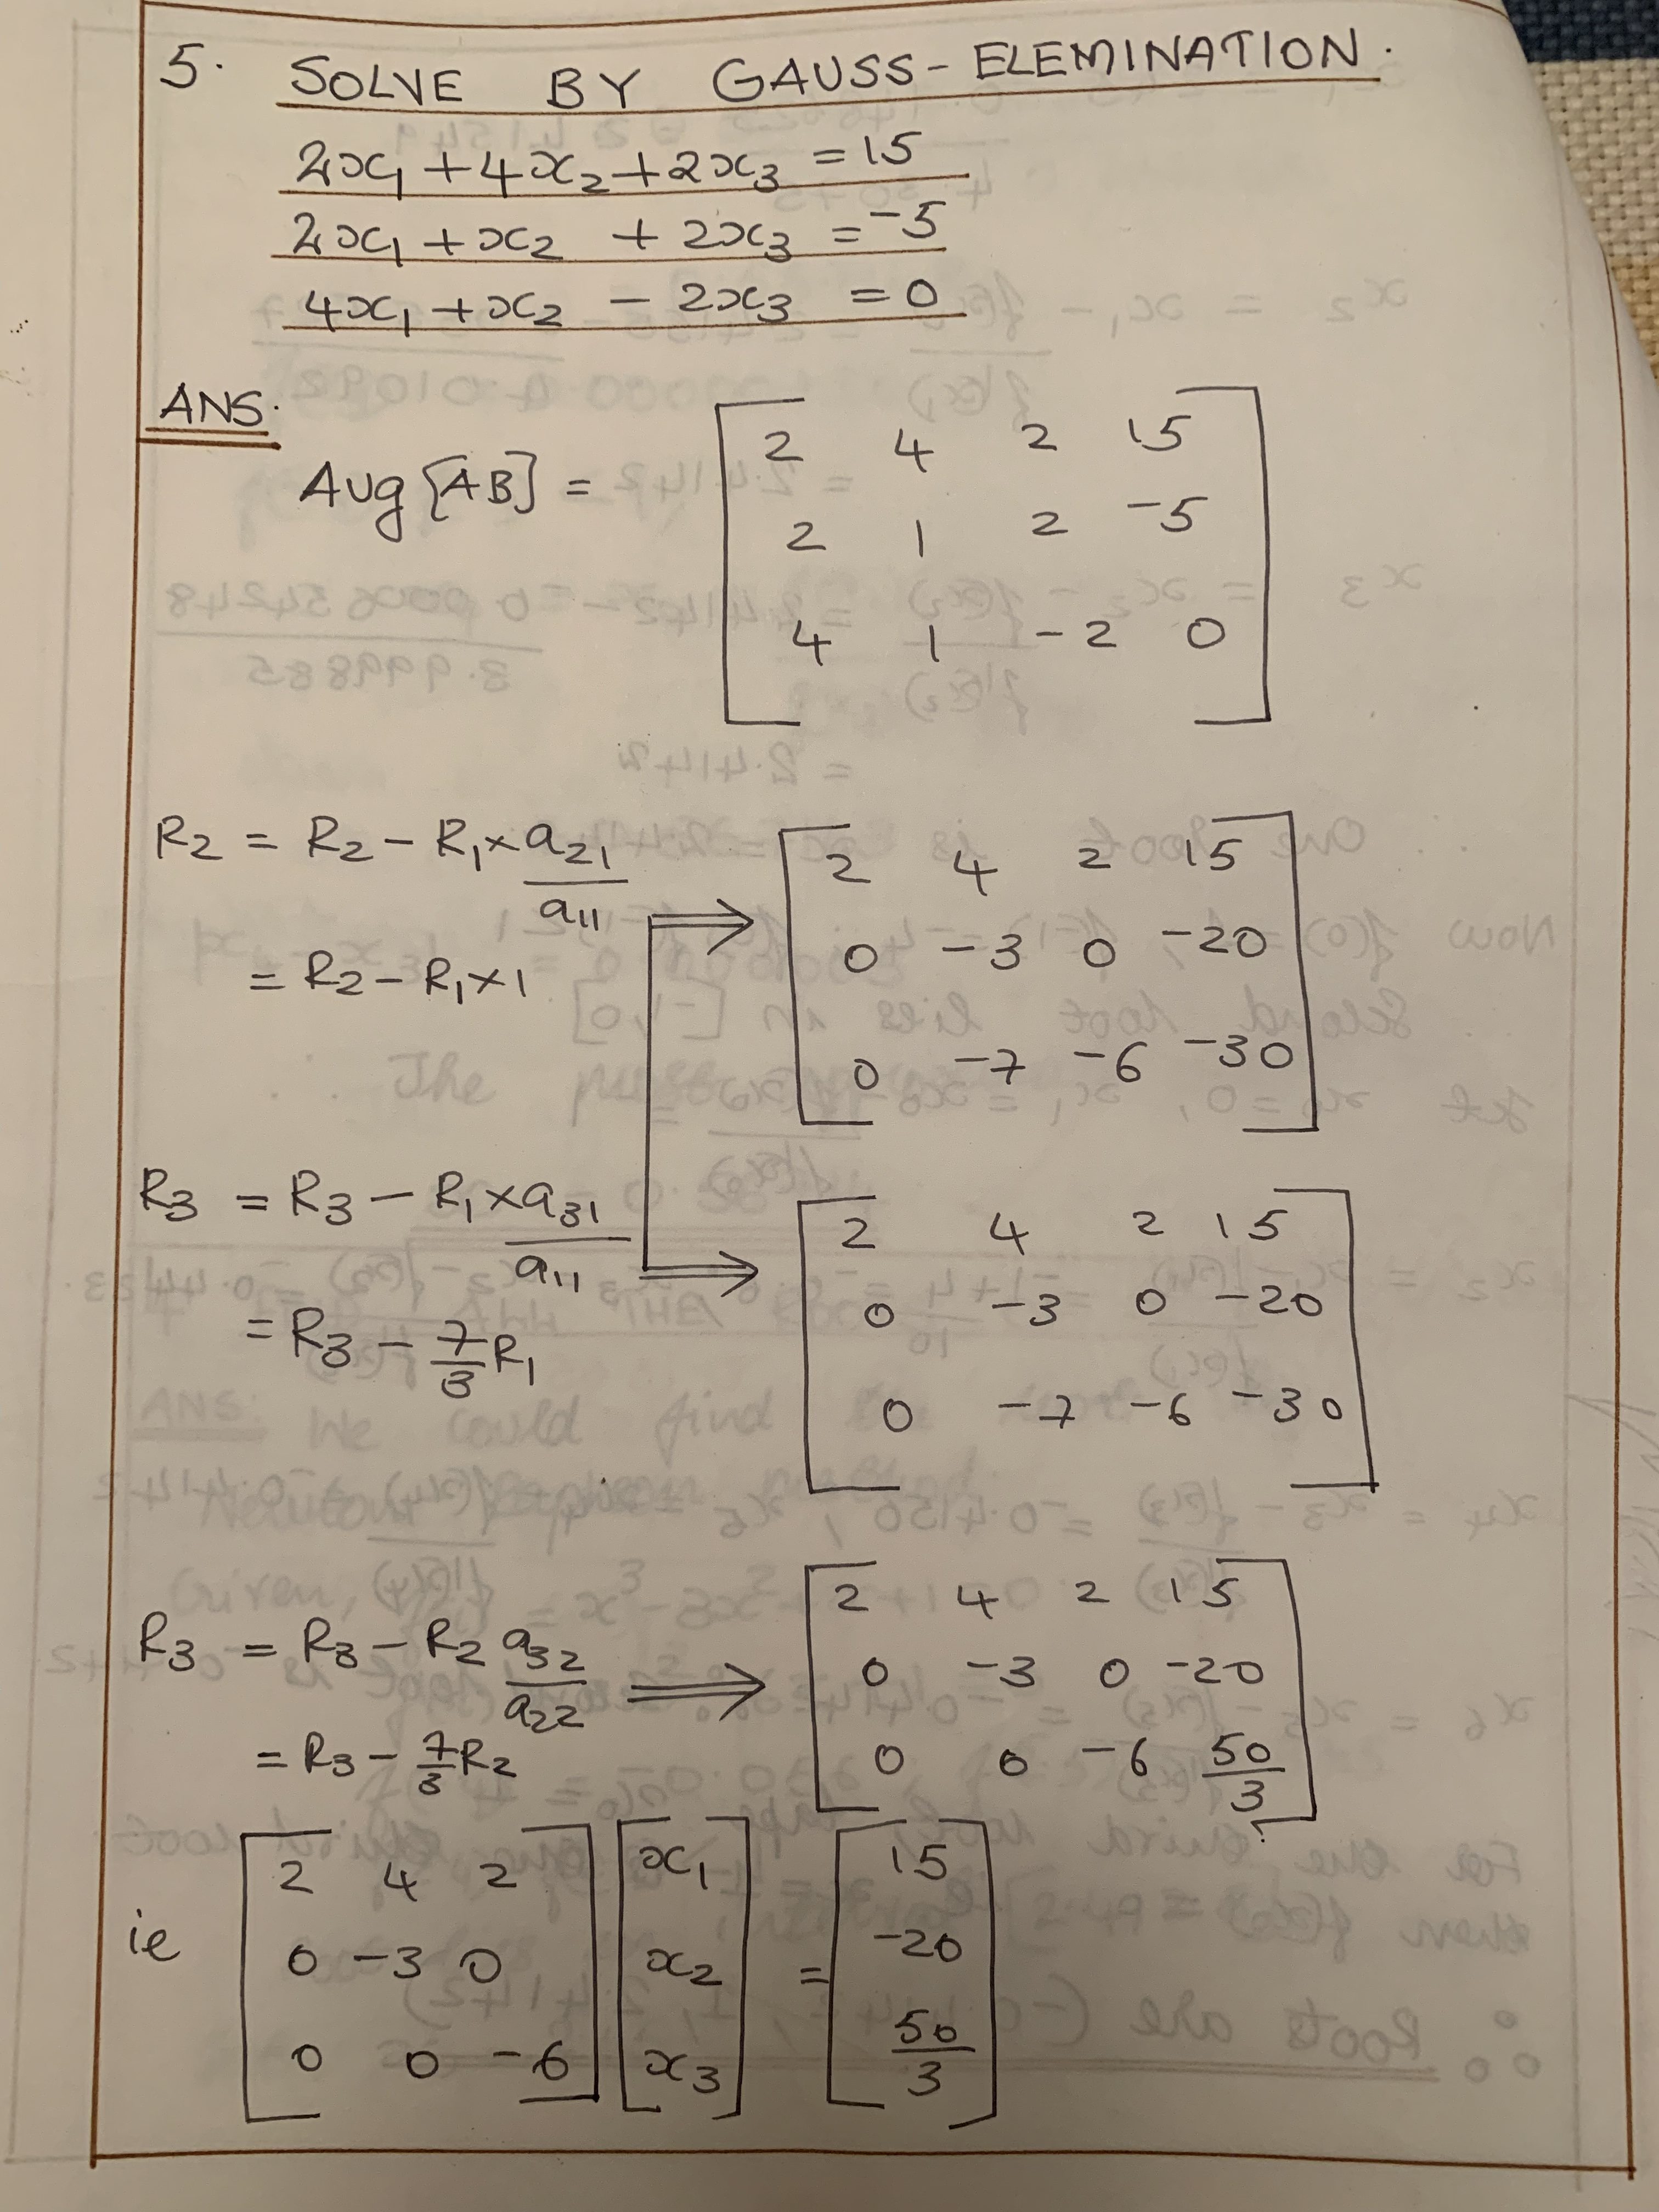 5. SOLVE BY GAUSS-ELEMINATION.
2x₁ + 4x₂ + 2x₃ = 15
2x₁ + x₂ + 2x₃ = -5
4x₁ + x₂ - 2x₃ = 0
ANS.
Aug [AB] =
2 4 2 15
2 1 2 -5
4 1 -2 0
R₂ = R₂ - R₁ × a₂₁/a₁₁
= R₂ - R₁ × 1
⇒
2 4 2 15
0 -3 0 -20
0 -7 -6 -30
R₃ = R₃ - R₁ × a₃₁/a₁₁
= R₃ - 7/3 R₁
⇒
2 4 2 15
0 -3 0 -20
0 -7 -6 -30
R₃ = R₃ - R₂ a₃₂/a₂₂
= R₃ - 7/3 R₂
⇒
2 4 2 15
0 -3 0 -20
0 0 -6 50/3
ie
2 4 2 x₁ 15
0 -3 0 x₂ = -20
0 0 -6 x₃ 50/3